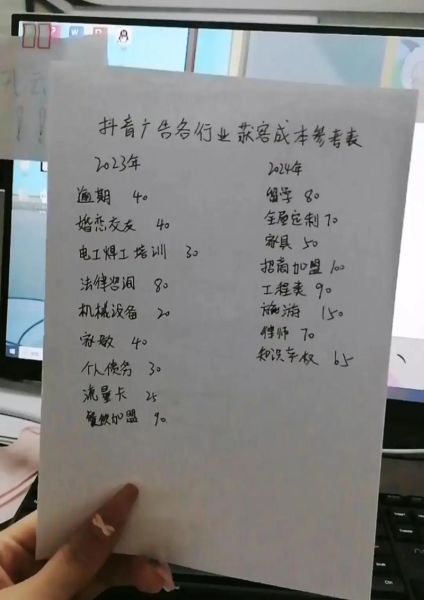 抖音广告各行业获客成本参考表
2023年
逾期 40
婚恋交友 40
电工焊工培训 30
法律咨询 80
机械设备 20
家政 40
个人债务 30
流量卡 25
餐饮加盟 90
2024年
留学 80
全屋定制 70
家具 50
招商加盟 100
工程类 90
旅游 150
律师 70
知识产权 65